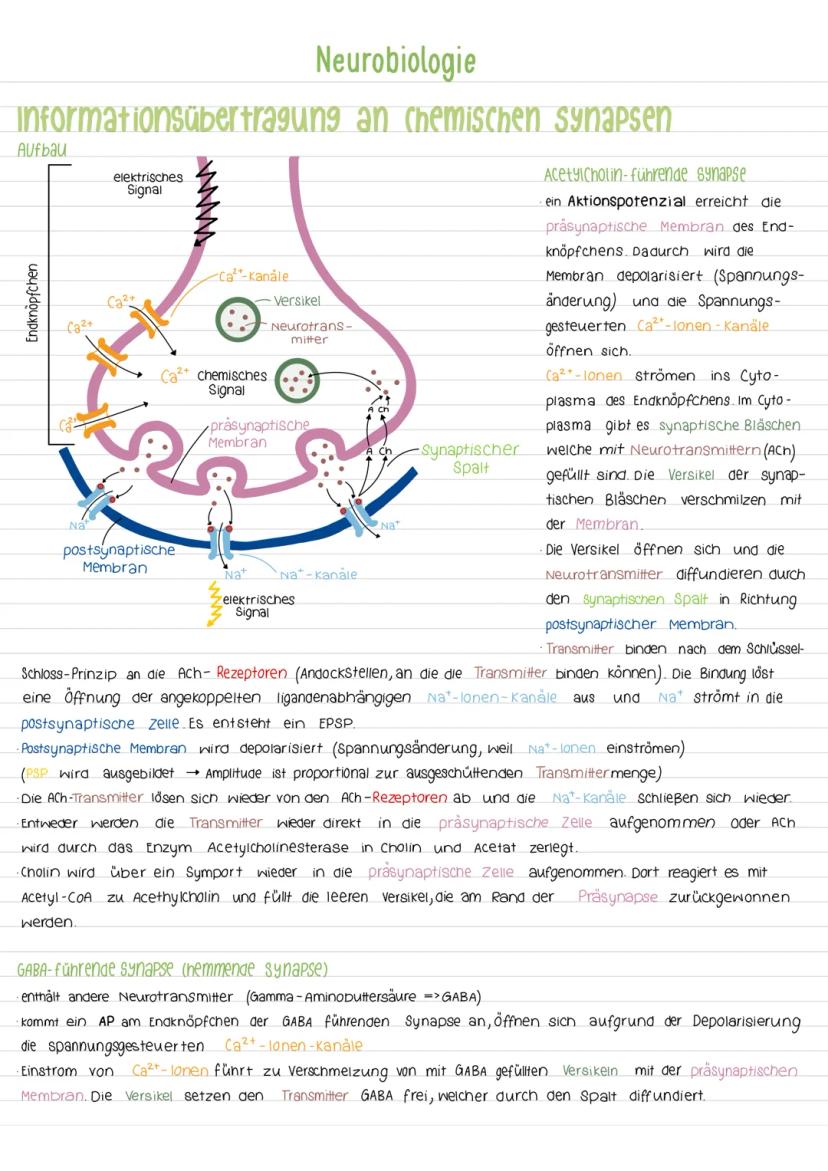 Neurobiologie
Informationsübertragung an chemischen Synapsen
Aufbau
elektrisches
Signal
Endknöpfchen
Ca²⁺-Kanäle
Ca²⁺
Ca²⁺
Versikel
Neurotrans-
mitter
Ca²⁺
chemisches
Signal
Ca²⁺
A Ch
A Ch
präsynaptische
Membran
synaptischer
Spalt
Na⁺
Na⁺
postsynaptische
Membran
Na⁺
Na⁺-Kanäle
elektrisches
Signal
Acetylcholin-führende Synapse
· ein Aktionspotenzial erreicht die
präsynaptische Membran des End-
knöpfchens. Dadurch wird die
Membran depolarisiert (Spannungs-
änderung) und die Spannungs-
gesteuerten Ca²⁺-Ionen-Kanäle
öffnen sich.
Ca²⁺-Ionen strömen ins Cyto-
plasma des Endknöpfchens. Im Cyto-
plasma gibt es synaptische Bläschen
welche mit Neurotransmittern (ACh)
gefüllt sind. Die Versikel der synap-
tischen Bläschen verschmilzen mit
der Membran.
· Die Versikel öffnen sich und die
Neurotransmitter diffundieren durch
den synaptischen Spalt in Richtung
postsynaptischer Membran.
· Transmitter binden nach dem Schlüssel-
Schloss-Prinzip an die ACh-Rezeptoren (Andockstellen, an die die Transmitter binden können). Die Bindung löst
eine Öffnung der angekoppelten ligandenabhängigen Na⁺-Ionen-Kanäle aus und Na⁺ strömt in die
postsynaptische Zelle. Es entsteht ein EPSP.
· Postsynaptische Membran wird depolarisiert (Spannungsänderung, weil Na⁺-Ionen einströmen)
(PSP wird ausgebildet → Amplitude ist proportional zur ausgeschüttenden Transmittermenge)
· Die ACh-Transmitter lösen sich wieder von den ACh-Rezeptoren ab und die Na⁺-Kanäle schließen sich wieder.
· Entweder werden die Transmitter wieder direkt in die präsynaptische Zelle aufgenommen oder ACh
wird durch das Enzym Acetylcholinesterase in Cholin und Acetat zerlegt.
· Cholin wird über ein Symport wieder in die präsynaptische Zelle aufgenommen. Dort reagiert es mit
Acetyl-CoA zu Acethylcholin und füllt die leeren Versikel, die am Rand der Präsynapse zurückgewonnen
werden.
GABA-führende Synapse (hemmende Synapse)
· enthält andere Neurotransmitter (Gamma-Aminobuttersäure => GABA)
· kommt ein AP am Endknöpfchen der GABA führenden Synapse an, öffnen sich aufgrund der Depolarisierung
die spannungsgesteuerten Ca²⁺-Ionen-Kanäle
· Einstrom von Ca²⁺-Ionen führt zu Verschmelzung von mit GABA gefüllten Versikeln mit der präsynaptischen
Membran. Die Versikel setzen den Transmitter GABA frei, welcher durch den Spalt diffundiert.